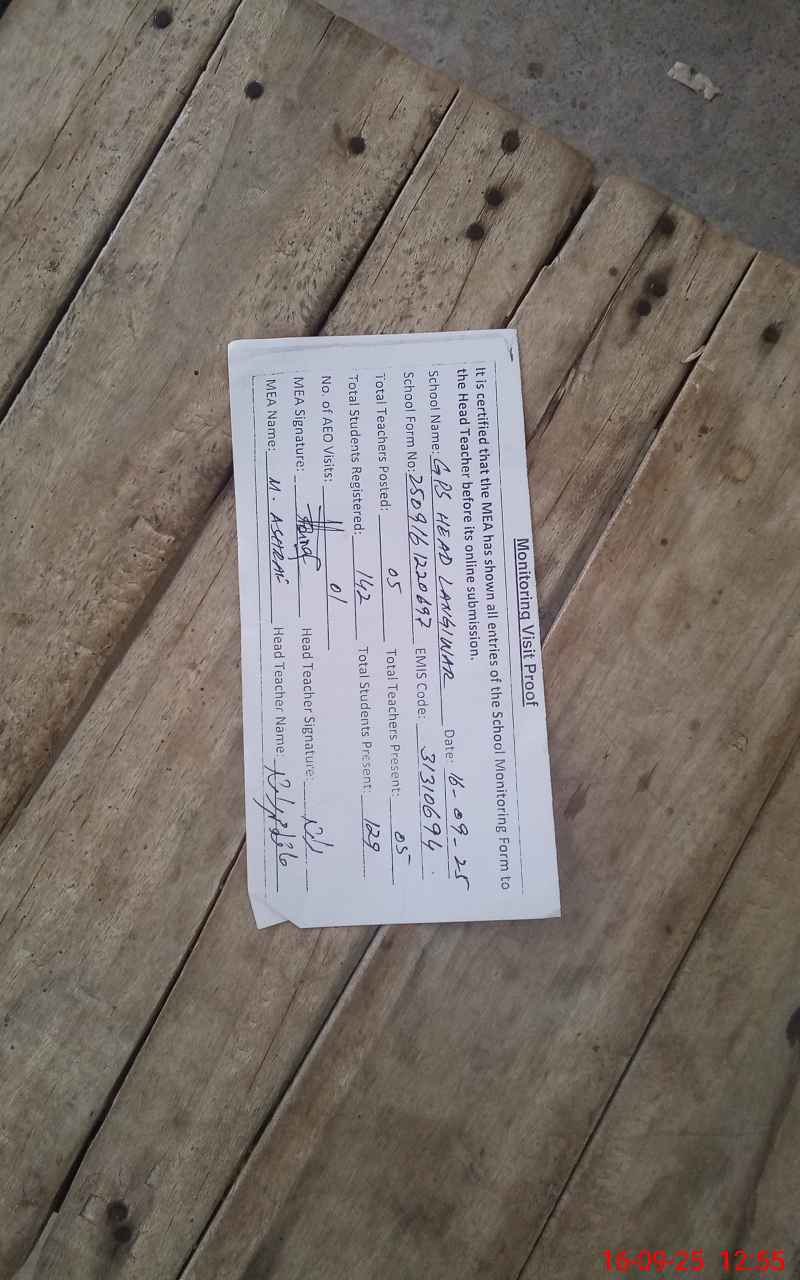 Monitoring Visit Proof
It is certified that the MEA has shown all entries of the School Monitoring Form to
the Head Teacher before its online submission.
School Name: GPS HEAD LANGIWAR Date: 16-09-25
School Form No: 2509161220697 EMIS Code: 31310694
Total Teachers Posted: 05 Total Teachers Present: 05
Total Students Registered: 142 Total Students Present: 129
No. of AEO Visits: 01
MEA Signature: Head Teacher Signature:
MEA Name: M. ASHRAF Head Teacher Name:
16-09-25 12:55